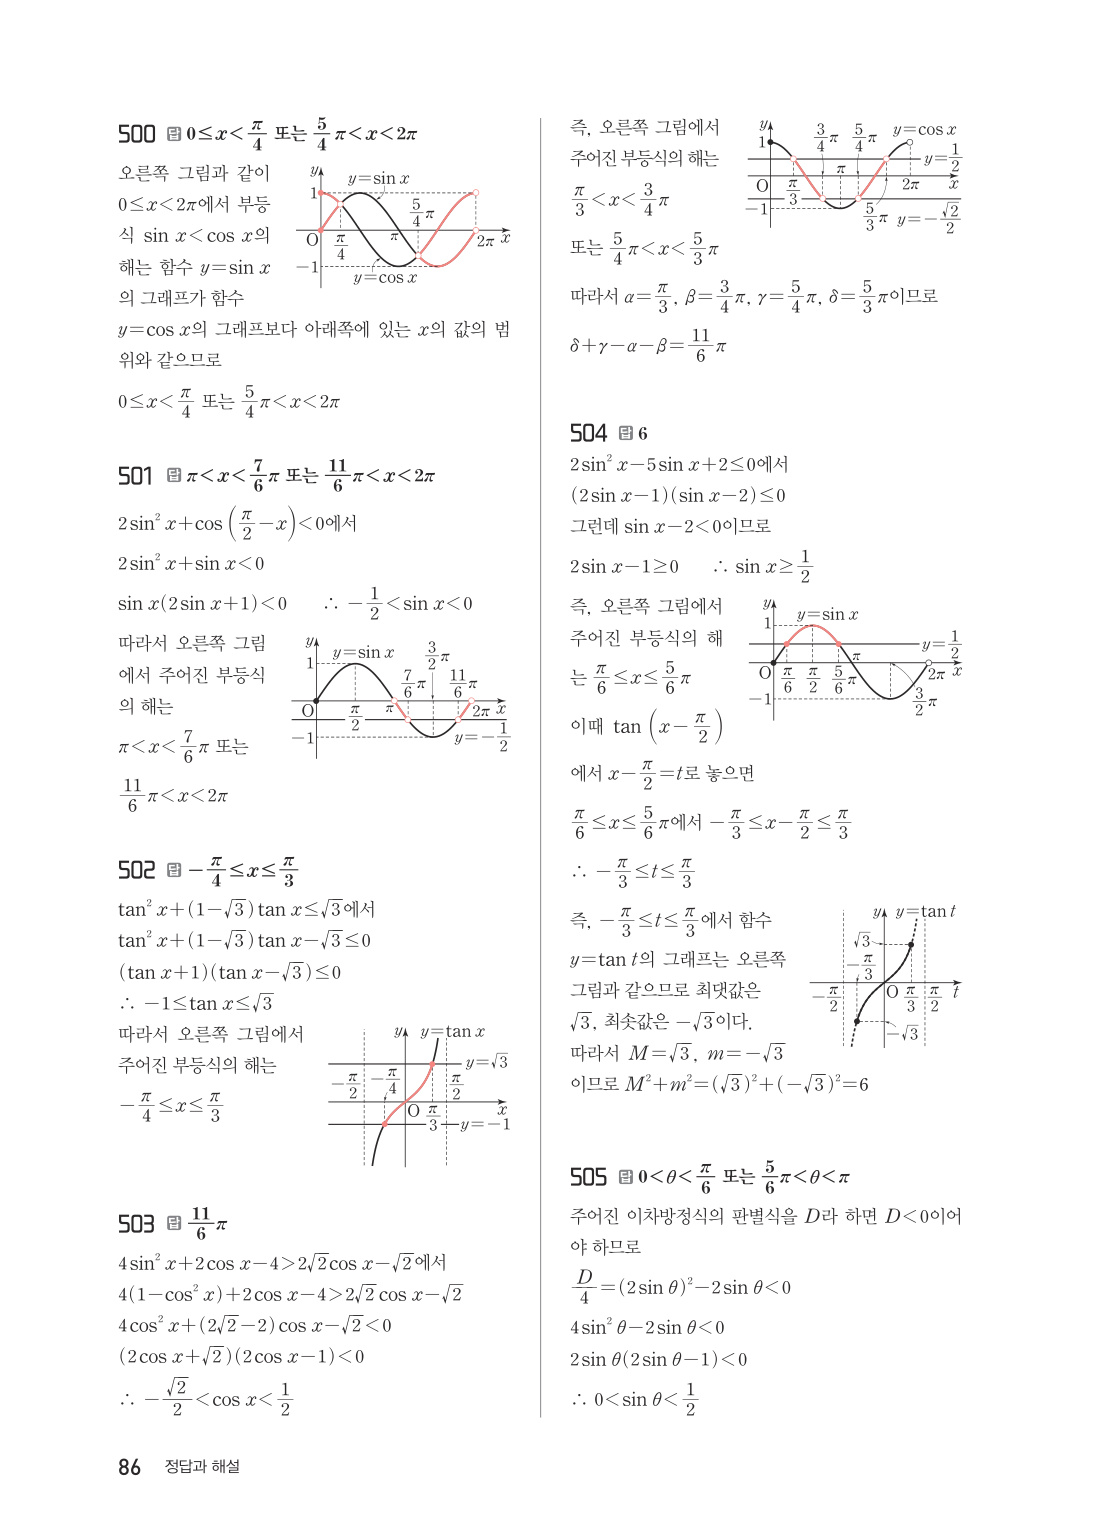 500 답 0≤x<π/4 또는 5/4 π<x<2π
오른쪽 그림과 같이
0≤x<2π에서 부등
식 sin x<cos x의
해는 함수 y=sin x
의 그래프가 함수
y=cos x의 그래프보다 아래쪽에 있는 x의 값의 범
위와 같으므로
0≤x<π/4 또는 5/4 π<x<2π
y 1 y=sin x 5/4 π O π/4 π 2π x -1 y=cos x
501 답 π<x<7/6 π 또는 11/6 π<x<2π
2 sin² x+cos (π/2-x)<0에서
2 sin² x+sin x<0
sin x(2 sin x+1)<0 ∴ -1/2<sin x<0
따라서 오른쪽 그림
에서 주어진 부등식
의 해는
π<x<7/6 π 또는
11/6 π<x<2π
y 1 y=sin x 3/2 π 7/6 π 11/6 π O π/2 π 2π x -1 y=-1/2
502 답 -π/4≤x≤π/3
tan² x+(1-√3)tan x≤√3에서
tan² x+(1-√3)tan x-√3≤0
(tan x+1)(tan x-√3)≤0
∴ -1≤tan x≤√3
따라서 오른쪽 그림에서
주어진 부등식의 해는
-π/4≤x≤π/3
y y=tan x y=√3 -π/2 -π/4 π/2 O π/3 x y=-1
503 답 11/6 π
4 sin² x+2 cos x-4>2√2 cos x-√2에서
4(1-cos² x)+2 cos x-4>2√2 cos x-√2
4 cos² x+(2√2-2) cos x-√2<0
(2 cos x+√2)(2 cos x-1)<0
∴ -√2/2<cos x<1/2
즉, 오른쪽 그림에서
주어진 부등식의 해는
π/3<x<3/4 π
또는 5/4 π<x<5/3 π
y 1 3/4 π 5/4 π y=cos x y=1/2 O π/3 π 2π x -1 5/3 π y=-√2/2
따라서 α=π/3, β=3/4 π, γ=5/4 π, δ=5/3 π이므로
δ+γ-α-β=11/6 π
504 답 6
2 sin² x-5 sin x+2≤0에서
(2 sin x-1)(sin x-2)≤0
그런데 sin x-2<0이므로
2 sin x-1≥0 ∴ sin x≥1/2
즉, 오른쪽 그림에서
주어진 부등식의 해
는 π/6≤x≤5/6 π
y 1 y=sin x y=1/2 O π/6 π/2 5/6 π π 2π x -1 3/2 π
이때 tan (x-π/2)
에서 x-π/2=t로 놓으면
π/6≤x≤5/6 π에서 -π/3≤x-π/2≤π/3
∴ -π/3≤t≤π/3
즉, -π/3≤t≤π/3에서 함수
y=tan t의 그래프는 오른쪽
그림과 같으므로 최댓값은
√3, 최솟값은 -√3이다.
따라서 M=√3, m=-√3
이므로 M²+m²=(√3)²+(-√3)²=6
y y=tan t √3 -π/3 -π/2 O π/3 π/2 t -√3
505 답 0<θ<π/6 또는 5/6 π<θ<π
주어진 이차방정식의 판별식을 D라 하면 D<0이어
야 하므로
D/4=(2 sin θ)²-2 sin θ<0
4 sin² θ-2 sin θ<0
2 sin θ(2 sin θ-1)<0
∴ 0<sin θ<1/2
86 정답과 해설